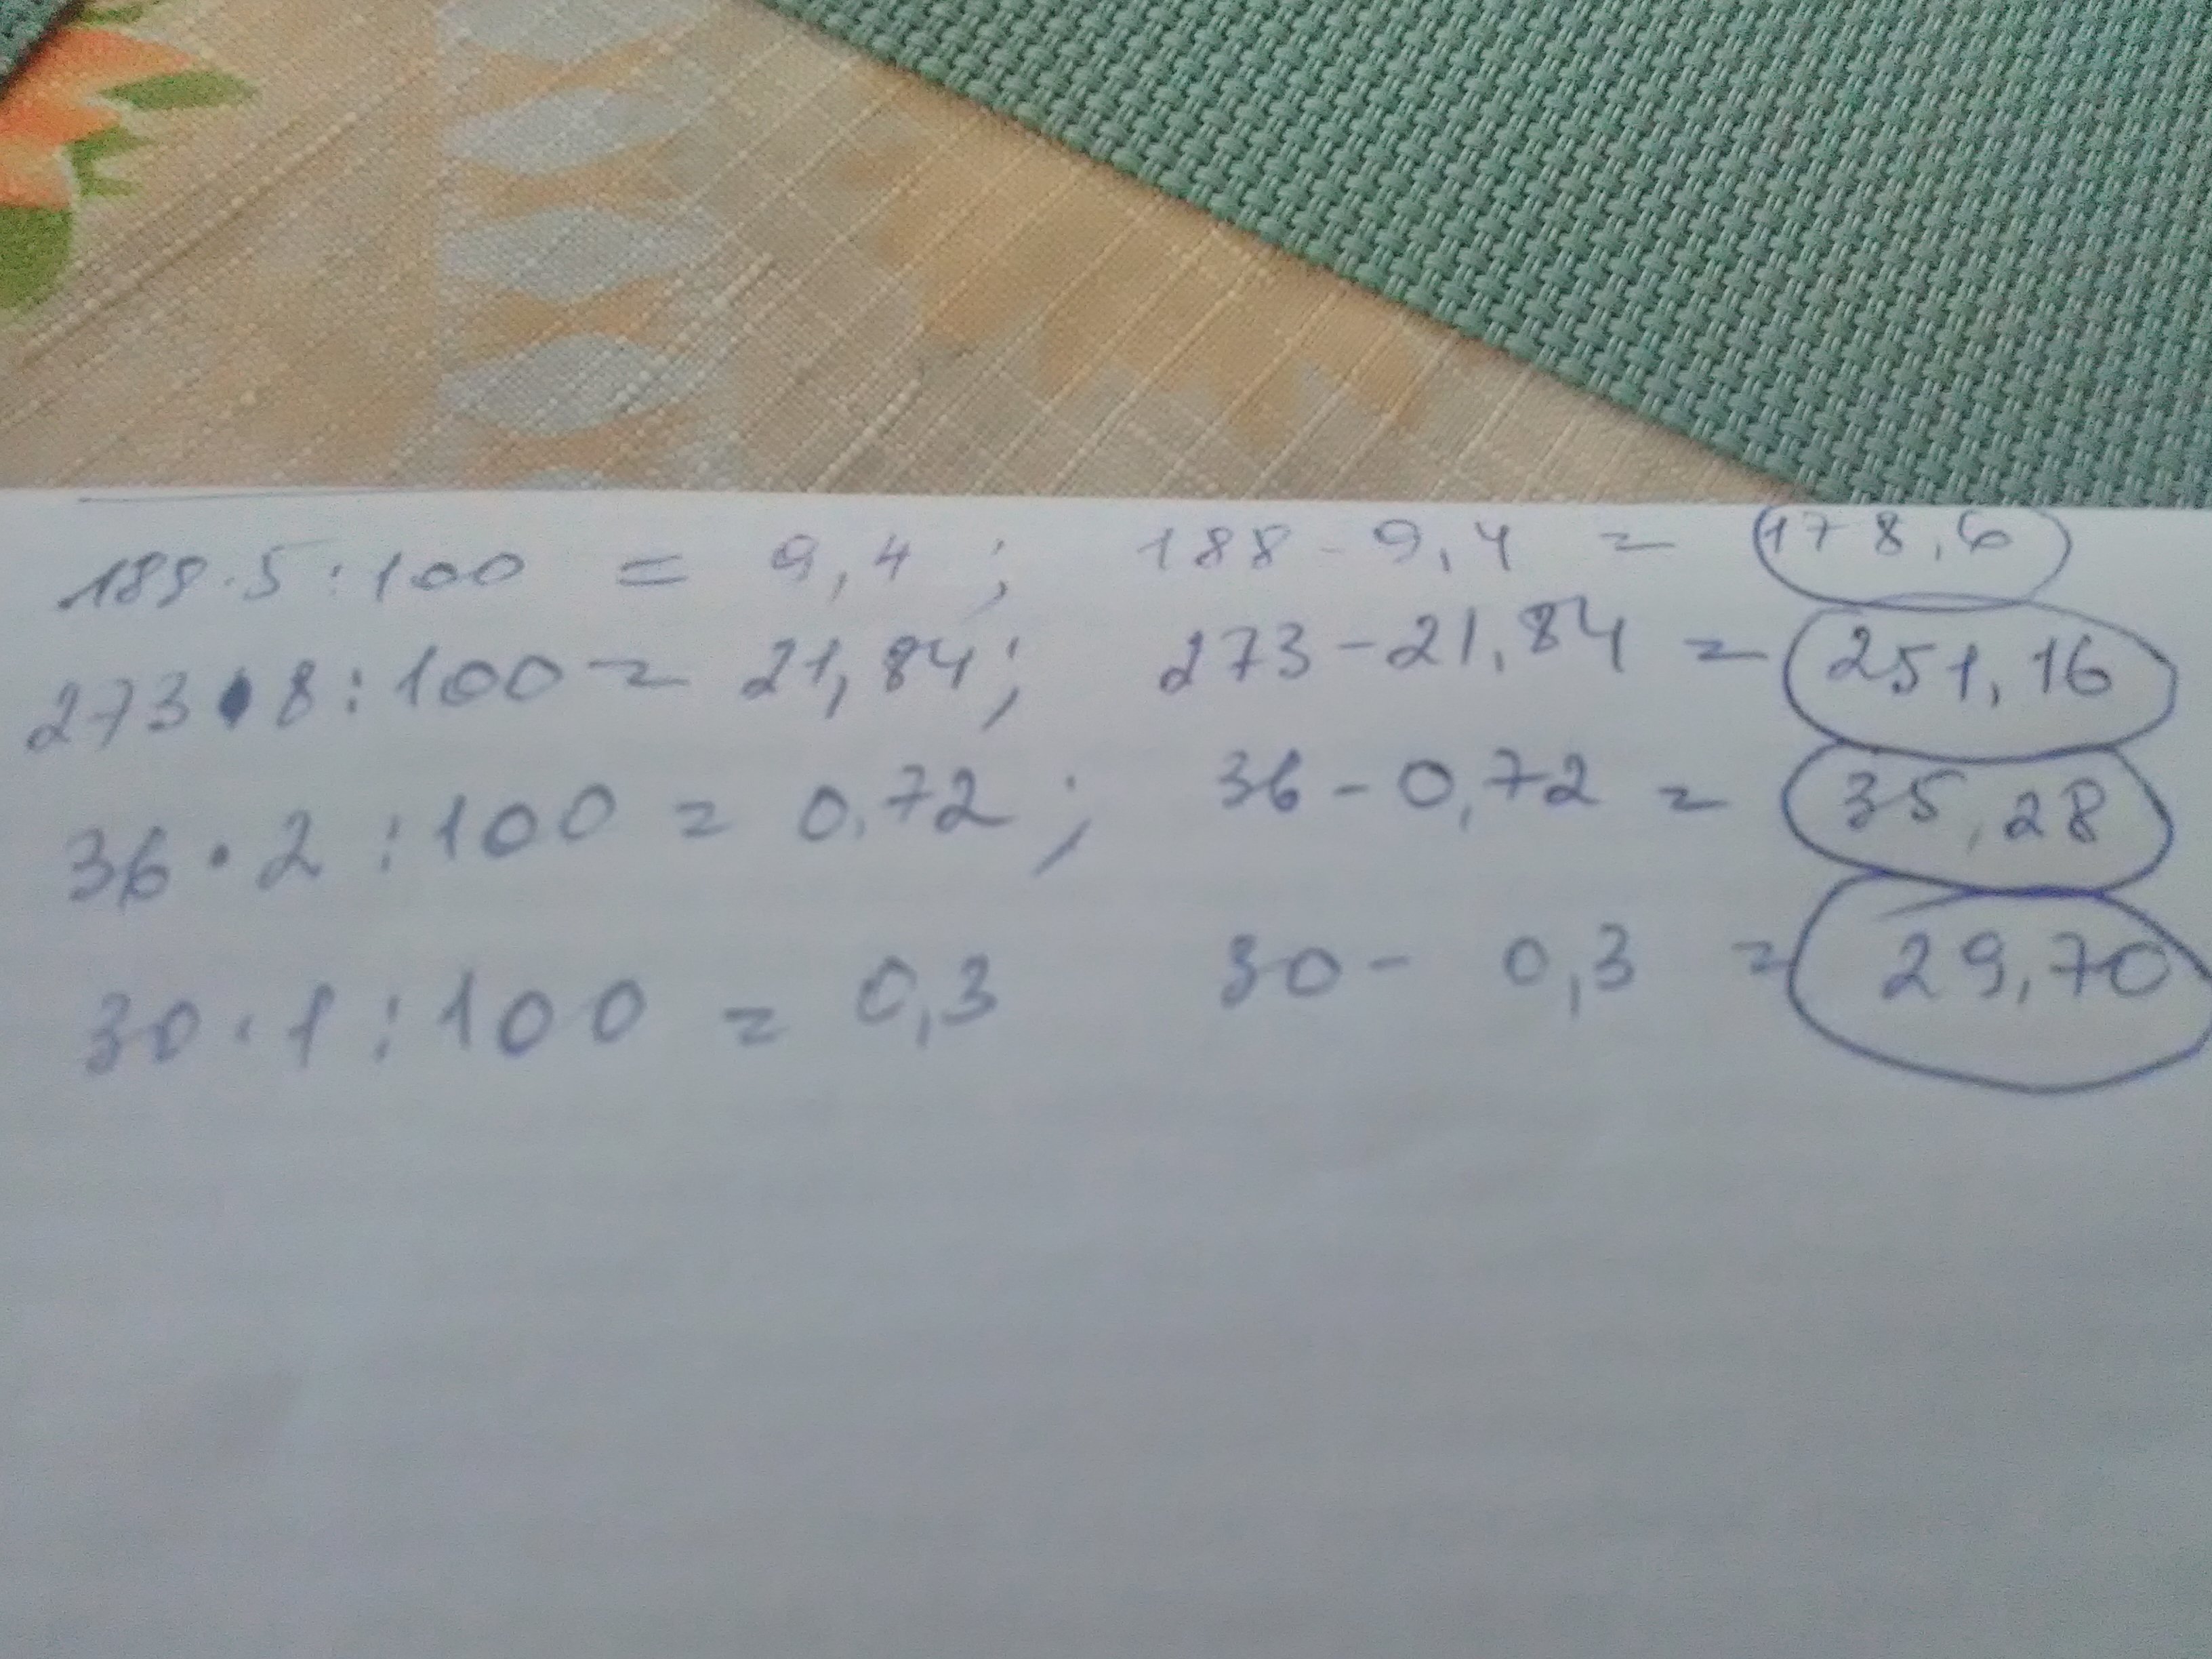 188.5:100 = 9,4 ; 188 - 9,4 = 178,6
273•8:100 = 21,84; 273-21,84 = 251,16
36•2:100 = 0,72; 36-0,72 = 35,28
30•1:100 = 0,3 30- 0,3 = 29,70